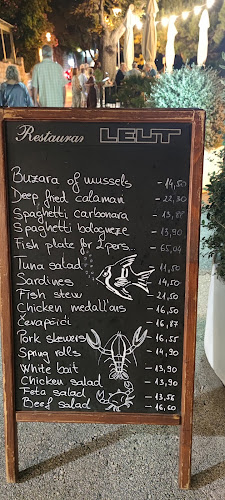 Restauras LELT
Buzara of mussels - 14,50
Deep fried calamari - 22,30
Spaghetti carbonara - 13,88
Spaghetti bologneze - 13,90
Fish plate for 2 pers... - 65,04
Tuna salad - 11,50
Sardines - 14,50
Fish stew - 21,50
Chicken medall'ais - 16,50
Čevapčići - 16,87
Pork skewers - 16,55
Spring rolls - 14,90
White bait - 13,90
Chicken salad - 13,90
Feta salad - 13,56
Beef salad - 16,60